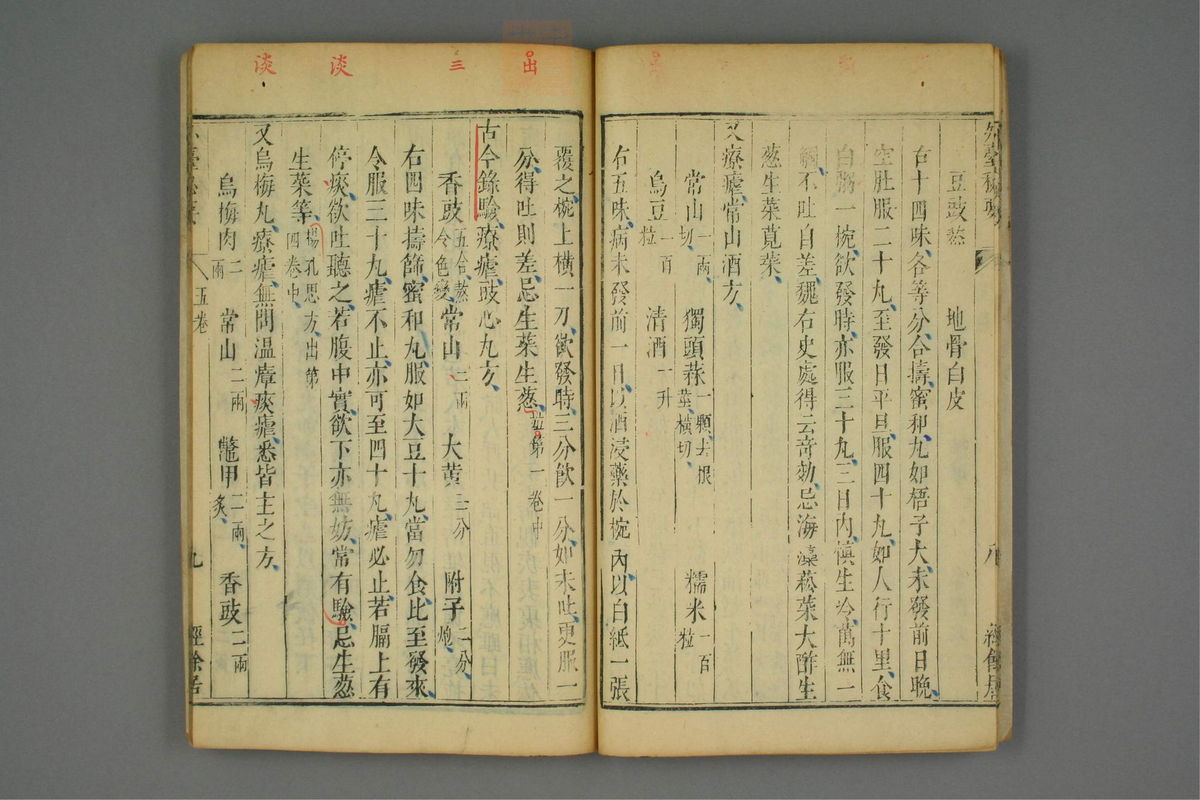 豆豉熬　地骨白皮
右十四味各等分合擣蜜和丸如梧子大未發前日晚
空肚服二十丸至發日平旦服四十丸如人行十里食
白粥一椀欲發時亦服三十丸三日內慎生冷萬無一
不吐自差魏右史處得云奇効忌海藻菘菜大酢生
葱生菜莧菜
又療瘧常山酒方
常山一兩切　獨頭蒜一顆去根莖橫切　糯米一百粒
烏豆一百粒　清酒一升
右五味病未發前一日以酒浸藥於椀內以白紙一張
覆之椀上橫一刀欲發時三分飲一分如未吐更服一
分得吐則差忌生菜生葱並出第一卷中
古今錄驗療瘧豉心丸方
香豉五合熬令色變　常山三兩　大黃三分　附子二分炮
右四味擣篩蜜和丸服如大豆十丸當勿食比至發來
令服三十丸瘧不止亦可至四十丸瘧必止若膈上有
停痰欲吐聽之若腹中實欲下亦無妨常有驗忌生葱
生菜等楊孔思方出第四卷中
又烏梅丸療瘧無問溫瘴痰瘧悉皆主之方
烏梅肉二兩　常山二兩　鼈甲二兩炙　香豉二兩
五卷
九
經餘居
外臺秘要
八
出
三
淡
淡